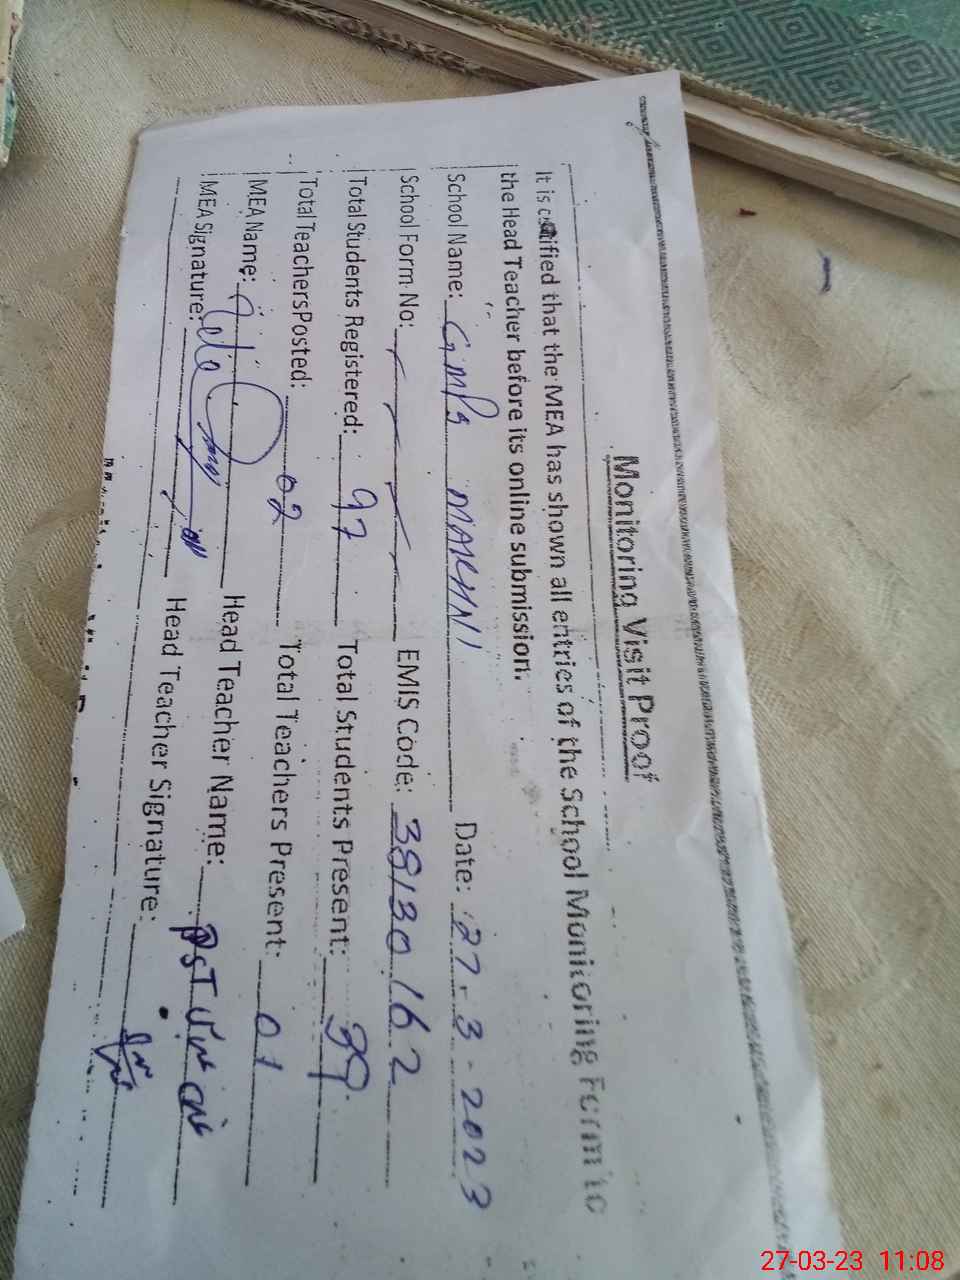 Monitoring Visit Proof
It is certified that the MEA has shown all entries of the School Monitoring Form to
the Head Teacher before its online submission.
School Name: GMPS MAKHNI Date: 27-3-2023
School Form No: EMIS Code: 38130162
Total Students Registered: 97 Total Students Present: 39
Total Teachers Posted: 02 Total Teachers Present: 01
MEA Name: Head Teacher Name: PST
MEA Signature: Head Teacher Signature:
27-03-23 11:08